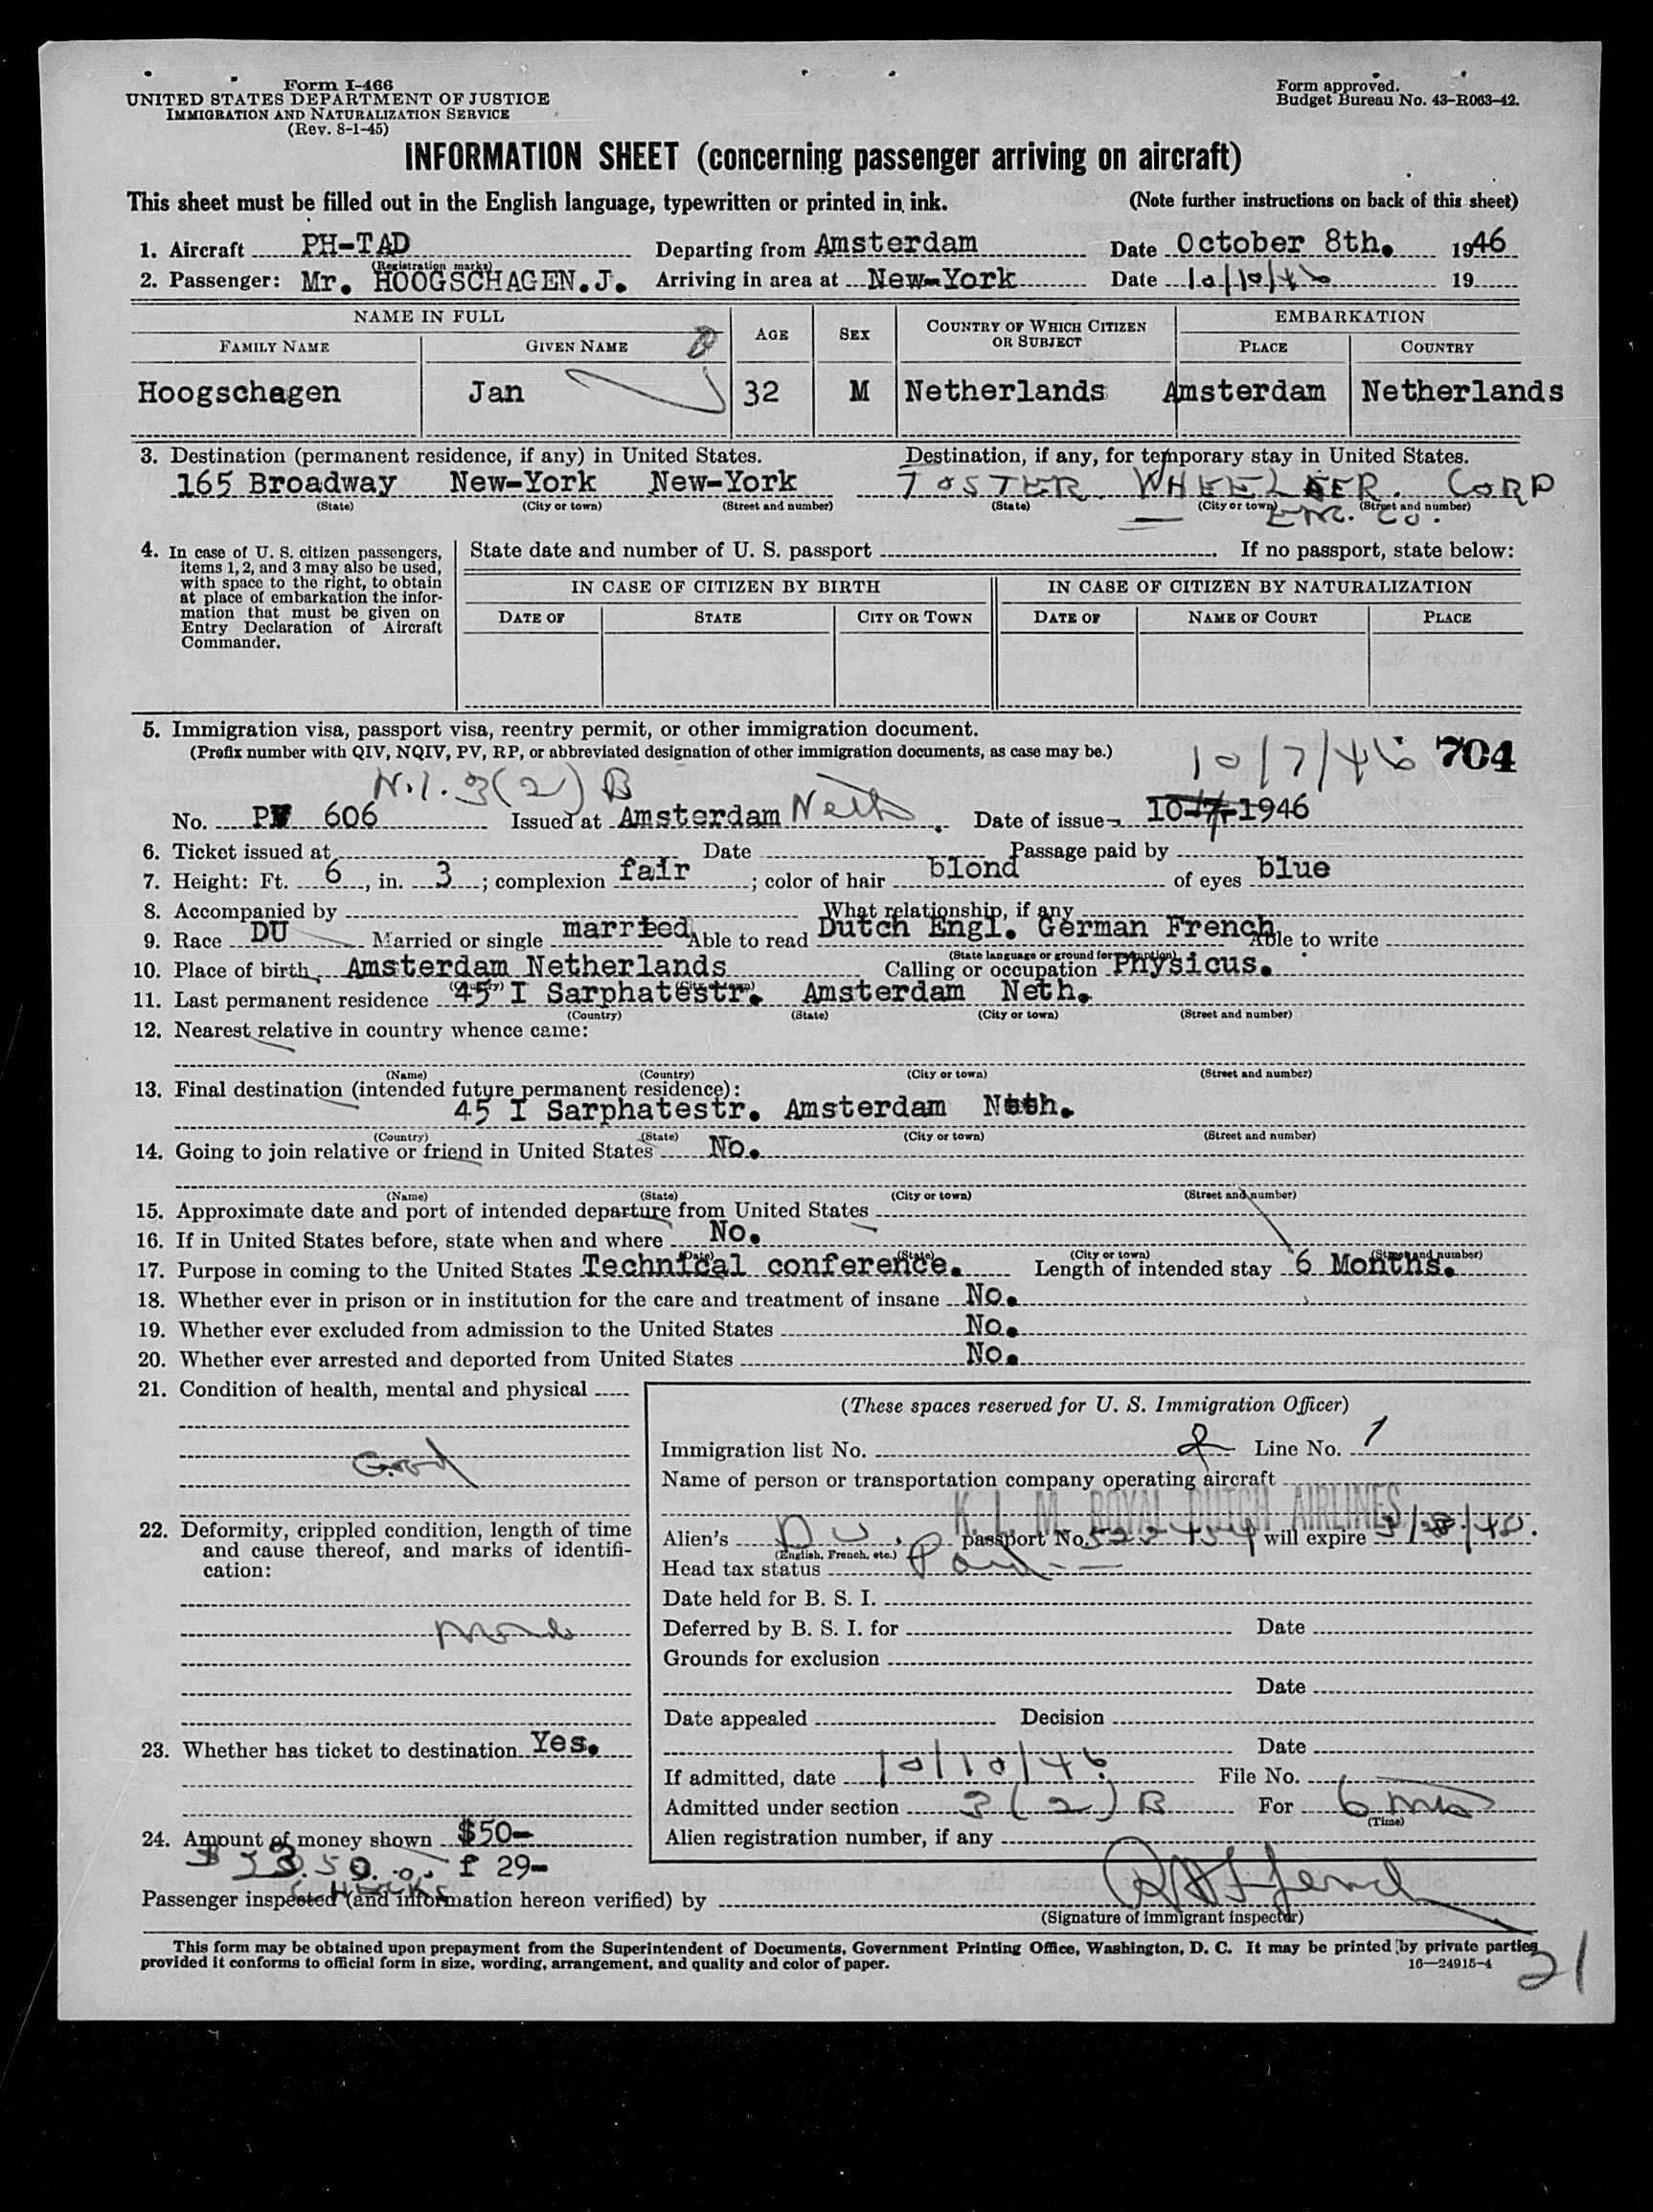 Form I-466
UNITED STATES DEPARTMENT OF JUSTICE
IMMIGRATION AND NATURALIZATION SERVICE
(Rev. 8-1-45)
Form approved.
Budget Bureau No. 43-R063-42.
INFORMATION SHEET (concerning passenger arriving on aircraft)
This sheet must be filled out in the English language, typewritten or printed in ink. (Note further instructions on back of this sheet)
1. Aircraft PH-TAD Departing from Amsterdam Date October 8th. 1946
(Registration marks)
2. Passenger: Mr. HOOGSCHAGEN.J. Arriving in area at New-York Date 10/10/46 19
NAME IN FULL AGE SEX COUNTRY OF WHICH CITIZEN OR SUBJECT EMBARKATION
FAMILY NAME GIVEN NAME PLACE COUNTRY
Hoogschagen Jan 32 M Netherlands Amsterdam Netherlands
3. Destination (permanent residence, if any) in United States. Destination, if any, for temporary stay in United States.
165 Broadway New-York New-York FOSTER WHEELER. CORP
(State) (City or town) (Street and number) (State) (City or town) (Street and number)
4. In case of U. S. citizen passengers, items 1, 2, and 3 may also be used, with space to the right, to obtain at place of embarkation the information that must be given on Entry Declaration of Aircraft Commander.
State date and number of U. S. passport If no passport, state below:
IN CASE OF CITIZEN BY BIRTH IN CASE OF CITIZEN BY NATURALIZATION
DATE OF STATE CITY OR TOWN DATE OF NAME OF COURT PLACE
5. Immigration visa, passport visa, reentry permit, or other immigration document.
(Prefix number with QIV, NQIV, PV, RP, or abbreviated designation of other immigration documents, as case may be.)
10/7/46 704
N.I. 3(2) B
No. PV 606 Issued at Amsterdam Neth Date of issue 10-7-1946
6. Ticket issued at Date Passage paid by
7. Height: Ft. 6, in. 3; complexion fair; color of hair blond of eyes blue
8. Accompanied by What relationship, if any
9. Race DU Married or single married Able to read Dutch Engl. German French Able to write
(State language or ground for exemption)
10. Place of birth Amsterdam Netherlands Calling or occupation Physicus.
(Country) (City or town)
11. Last permanent residence 45 I Sarphatestr. Amsterdam Neth.
(Country) (State) (City or town) (Street and number)
12. Nearest relative in country whence came:
(Name) (Country) (City or town) (Street and number)
13. Final destination (intended future permanent residence):
45 I Sarphatestr. Amsterdam Neth.
(Country) (State) (City or town) (Street and number)
14. Going to join relative or friend in United States No.
(Name) (State) (City or town) (Street and number)
15. Approximate date and port of intended departure from United States
16. If in United States before, state when and where No.
(Date) (State) (City or town) (Street and number)
17. Purpose in coming to the United States Technical conference. Length of intended stay 6 Months.
18. Whether ever in prison or in institution for the care and treatment of insane No.
19. Whether ever excluded from admission to the United States No.
20. Whether ever arrested and deported from United States No.
21. Condition of health, mental and physical
Good
22. Deformity, crippled condition, length of time and cause thereof, and marks of identification:
None
23. Whether has ticket to destination Yes.
24. Amount of money shown $50-
f 29-
CHECKS
(These spaces reserved for U. S. Immigration Officer)
Immigration list No. Line No. 1
Name of person or transportation company operating aircraft
K. L. M. ROYAL DUTCH AIRLINES
Alien's Du. passport No. will expire
(English, French, etc.)
Head tax status Paid
Date held for B. S. I.
Deferred by B. S. I. for Date
Grounds for exclusion
Date
Date appealed Decision
Date
If admitted, date 10/10/46 File No.
Admitted under section 3(2)B For 6 mos
(Time)
Alien registration number, if any
Passenger inspected (and information hereon verified) by
(Signature of immigrant inspector)
This form may be obtained upon prepayment from the Superintendent of Documents, Government Printing Office, Washington, D. C. It may be printed by private parties
provided it conforms to official form in size, wording, arrangement, and quality and color of paper. 16—24915-4
21